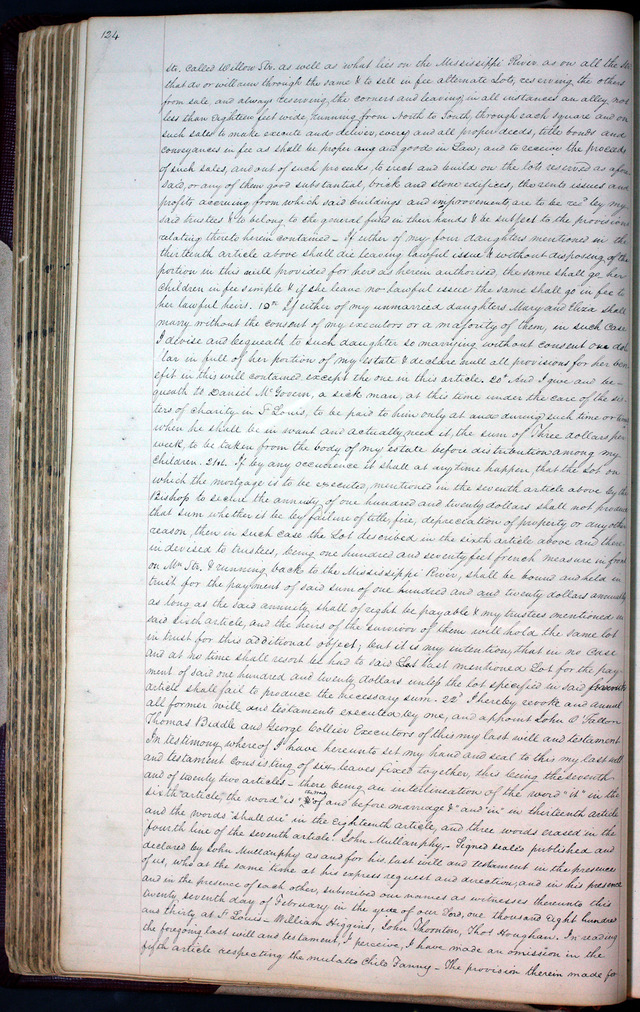 124
Str. called Willow Str. as well as what lies on the Mississippi River. as on all the
that do or will run through the same & to sell in fee alternate Lots, reserving the others
from sale and always reserving, the corners and leaving in all instances an alley, not
less than Eighteen feet wide, running from North to South, through each square and on
such sales to make execute and deliver, every and all proper deeds, title bonds and
conveyances in fee as shall be proper and good in Law, and to receive the proceeds
of such sales, and out of such proceeds, to erect and build on the lots reserved as afore
said, or any of them good substantial, brick and stone edifices, the rents issues and
profits accruing from which said buildings and improvements are to be recd by my
said trustees & to belong to the general fund in their hands & be subject to the provisions
relating thereto herein contained - If either of my four daughters mentioned in the
thirteenth article above shall die leaving lawful issue & without disposing of the
portion in this will provided for her as herein authorised, the same shall go her
children in fee simple & if she leave no lawful issue the same shall go in fee to
her lawful heirs. 19th If either of my unmarried daughters Mary and Eliza shall
marry without the consent of my executors or a majority of them, in such case
I devise and bequeath to such daughter so marrying without consent one dol
lar in full of her portion of my estate & declare null all provisions for her ben
efit in this will contained except the one in this article. 20th And I give and be-
queath to Daniel McGovern, a sick man, at this time under the care of the sis-
ters of charity in St Louis, to be paid to him only at and during such time or times
when he shall be in want and actually need it, the sum of Three dollars per
week, to be taken from the body of my estate before distribution among my
Children. 21st If by any occurrence it shall at any time happen, that the Lot on
which the mortgage is to be executed, mentioned in the seventh article above by the
Bishop to secure the annuity of one hundred and twenty dollars shall not produce
that sum whether it be by failure of title, fire, depreciation of property or any other
reason, then in such case the Lot described in the sixth article above and there-
in devised to trustees, being one hundred and seventy feet french measure in front
on Mn Str. & running back to the Mississippi River, shall be bound and held in
trust for the payment of said sum of one hundred and and twenty dollars annually
as long as the said annuity shall of right be payable & my trustees mentioned in
said sixth article, and the heirs of the survivor of them will hold the same lot
in trust for this additional object; but it is my intention, that in no case
and at no time shall resort be had to said Lot last mentioned Lot for the pay-
ment of said one hundred and twenty dollars unless the lot specified in said seventh
article shall fail to produce the necessary sum. 22d I hereby revoke and annul
all former will and testaments executed by me, and appoint John O'Fallon
Thomas Biddle and George Collier Executors of this my last will and testament
In testimony, whereof I have hereunto set my hand and seal to this my last will
and testament Consisting of six leaves fixed together, this being the seventh
and of twenty two articles - there being an intelineation of the word "it" in the
sixth article, the word "is" of and before marriage & and in in thirteenth article
and the words shall die" in the Eighteenth article, and three words erased in the
fourth line of the seventh article. John Mullanphy, - Signed sealed published and
declared by John Mullanphy as and for his last will and testament in the presence
of us, who at the same time at his express request and direction, and in his presence
and in the presence of each other, subscribed our names as witnesses thereunto this
twenty seventh day of February in the year of our Lord, one thousand Eight hundred
and thirty at St Louis - William Higgins, John Thornton, Thos Houghan. In reading
the foregoing last will and testament, I perceive, I have made an omission in the
fifth article respecting the mulatto Child Fanny - The provision therein made for